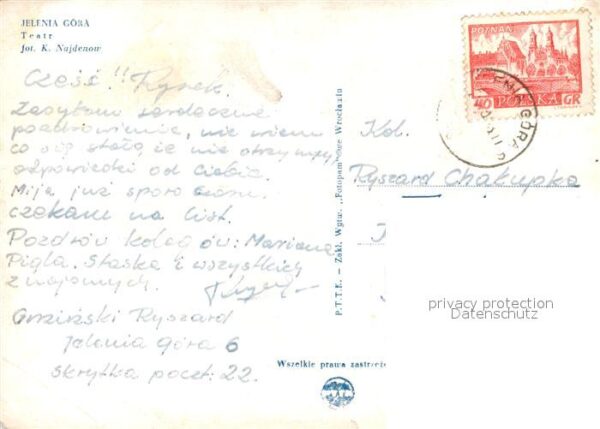 JELENIA GÓRA
Teatr
fot. K. Najdenow
Cześć!! Rysiek.
Zasyłam serdeczne
pozdrowienia, nie wiem
co się stało że nie otrzymuję
odpowiedzi od Ciebie.
Mija już sporo czasu.
czekam na list.
Pozdrów kolegów: Mariana
Pigla. Staśka i wszystkich
znajomych.
Ryszard
Jelenia Góra 6
skrytka poczt. 22.
P.T.T.K. – Zakł. Wytw. „Fotopam" owe Wrocław
Wszelkie prawa zastrzeż
POZNAŃ
40 POLSKA GR
GÓRA
Kol.
Ryszard Chałupka
privacy protection
Datenschutz